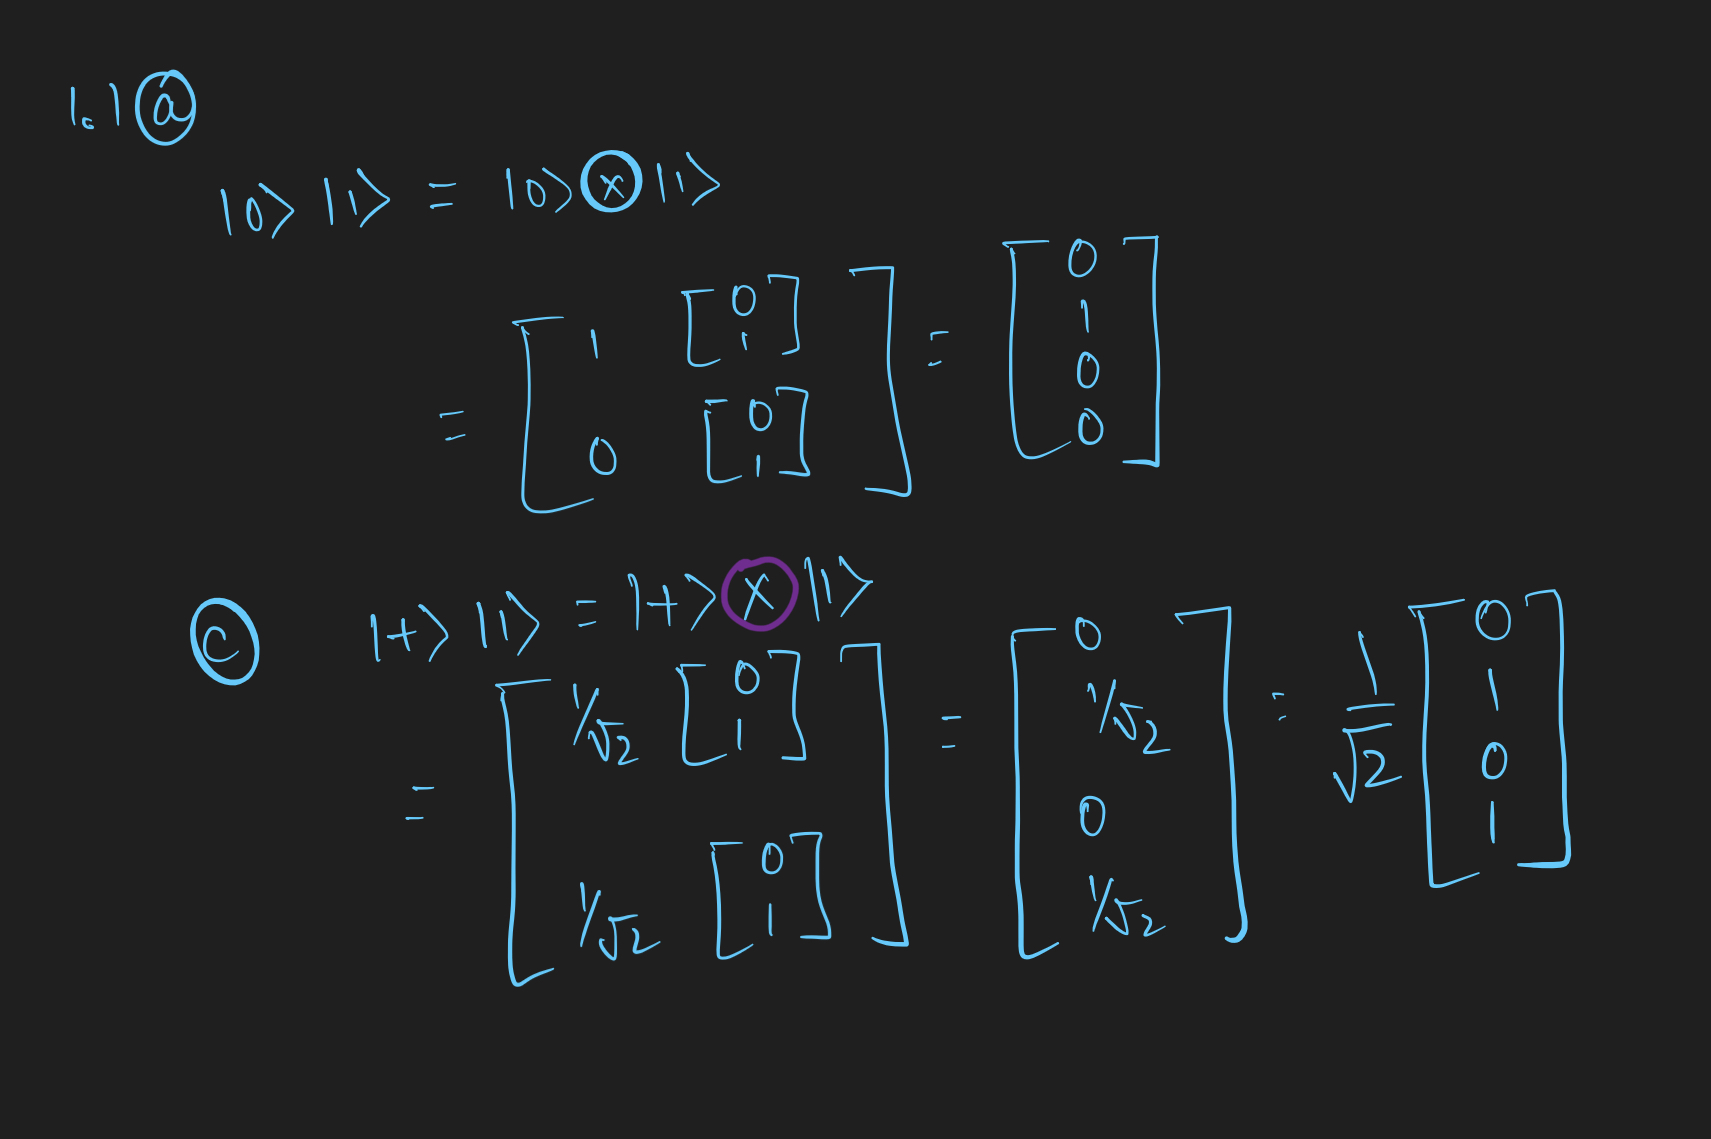 1.1 ⓐ
|0⟩ |1⟩ = |0⟩ ⊗ |1⟩
= [ 1 [ 0 1 ] 0 [ 0 1 ] ] = [ 0 1 0 0 ]
ⓒ |+⟩ |1⟩ = |+⟩ ⊗ |1⟩
= [ 1/√2 [ 0 1 ] 1/√2 [ 0 1 ] ] = [ 0 1/√2 0 1/√2 ] = 1/√2 [ 0 1 0 1 ]